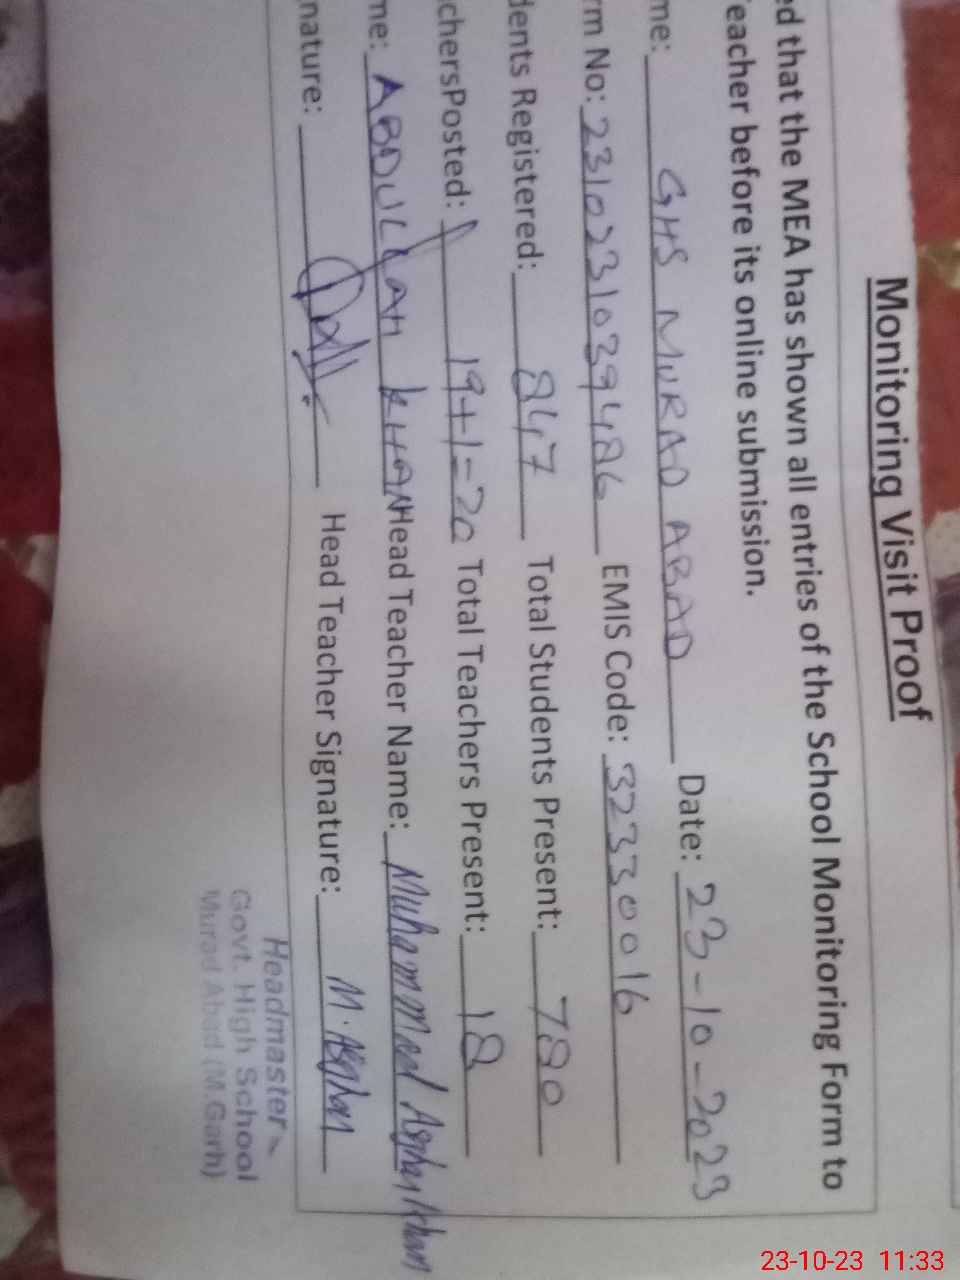 Monitoring Visit Proof
ed that the MEA has shown all entries of the School Monitoring Form to
eacher before its online submission.
me: GHS MURAD ABAD Date: 23-10-2023
rm No: 23102310394886 EMIS Code: 32330016
dents Registered: 847 Total Students Present: 780
chersPosted: 19+1=20 Total Teachers Present: 18
me: ABDULLAH KHAN Head Teacher Name: Muhammad Asghar Khan
nature: Head Teacher Signature: M. Asghar
Headmaster
Govt. High School
Murad Abad (M.Garh)
23-10-23 11:33